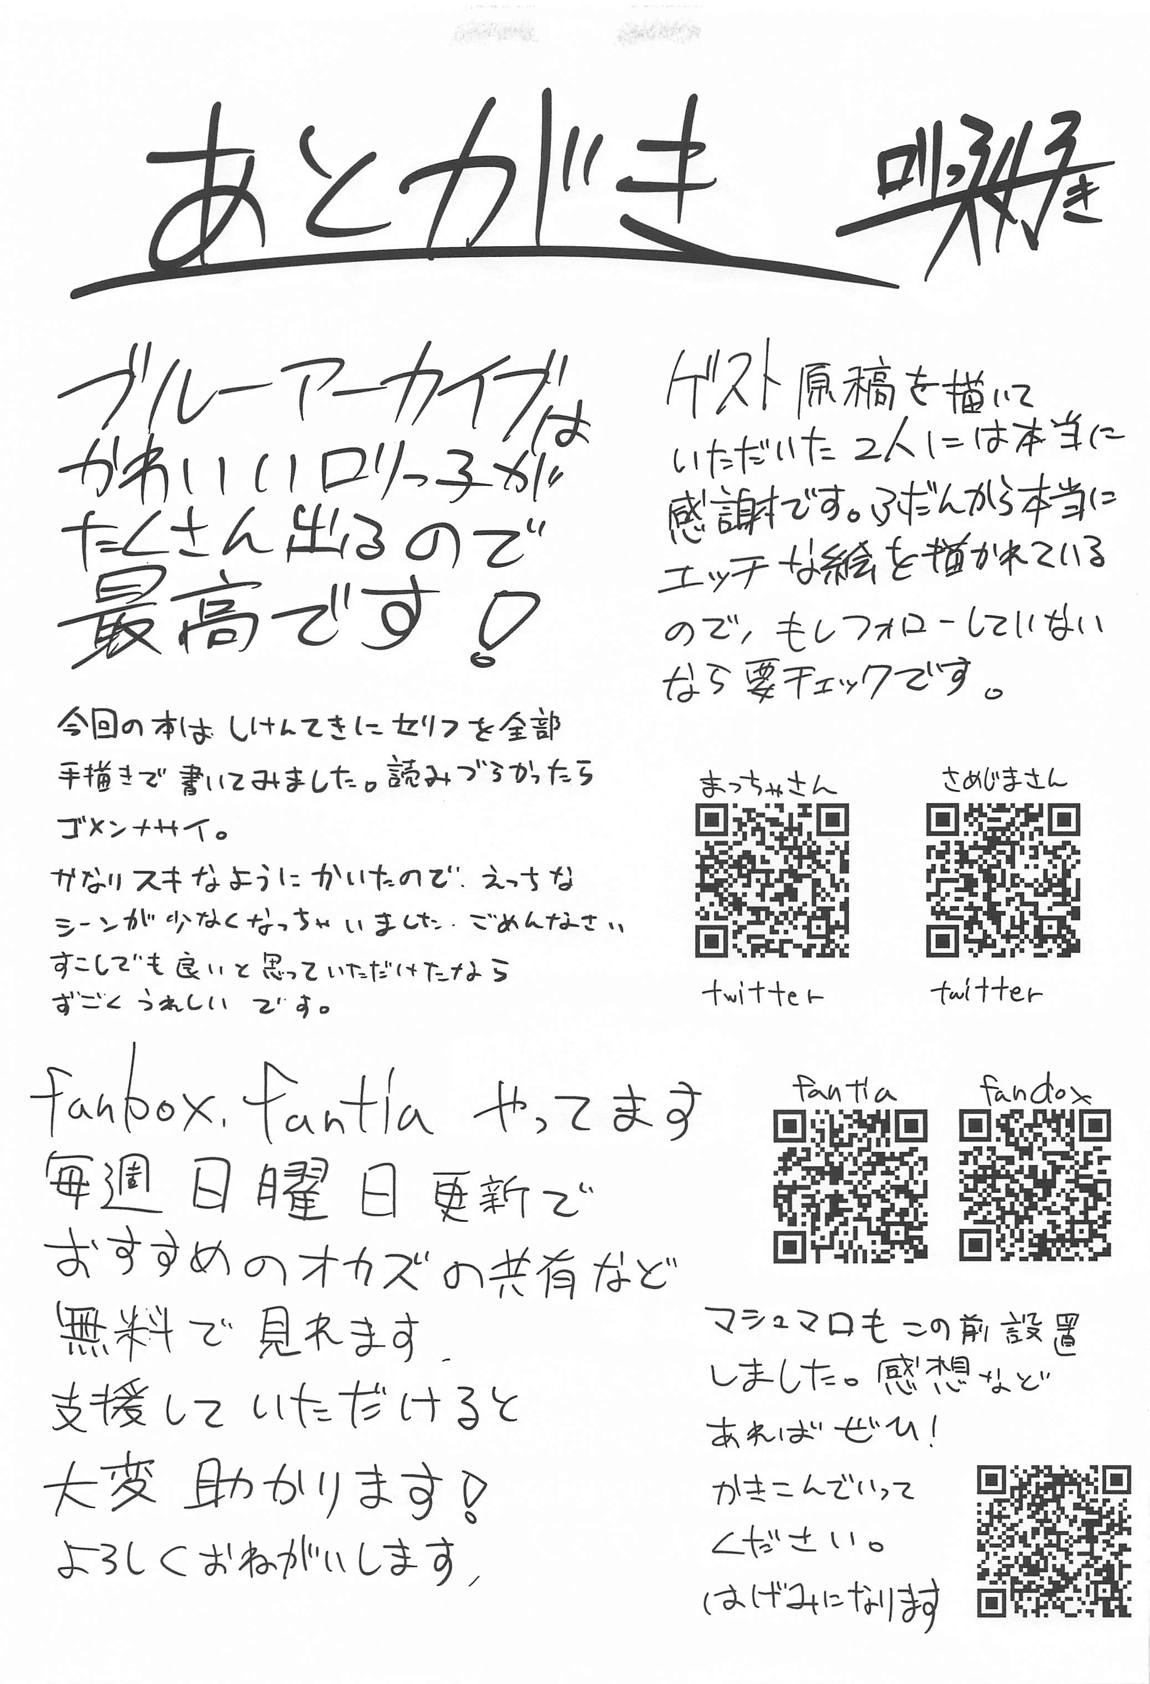 あとがき
ロリっ子大好き
ブルーアーカイブは
かわいいロリっ子が
たくさん出るので
最高です!
今回の本はしけんてきにセリフを全部
手描きで書いてみました。読みづらかったら
ゴメンナサイ。
かなりスキなようにかいたので、えっちな
シーンが少なくなっちゃいました。ごめんなさい
すこしでも良いと思っていただけたなら
すごくうれしいです。
ゲスト原稿を描いて
いただいた2人には本当に
感謝です。ふだんから本当に
エッチな絵を描かれている
ので、もしフォローしていない
なら要チェックです。
まっちゃさん
さめじまさん
twitter
twitter
fanbox、fantia やってます
毎週日曜日更新で
おすすめのオカズの共有など
無料で見れます、
支援していただけると
大変助かります!
よろしくおねがいします、
fantia
fanbox
マシュマロもこの前設置
しました。感想など
あればぜひ!
かきこんでいって
ください。
はげみになります